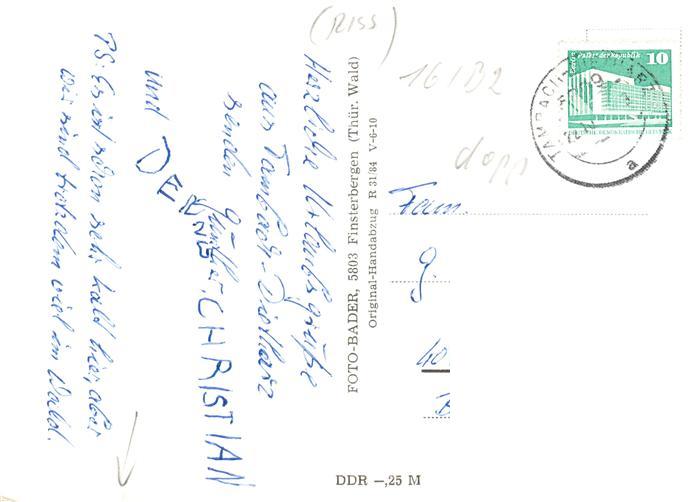 (RISS)
16/B2
dopp
Herzliche Urlaubsgrüße
aus Tambach-Dietharz
senden Günther, CHRISTIAN
und
PS: Es ist schon sehr kalt hier, aber
wir sind trotzdem viel im Wald.
FOTO-BADER, 5803 Finsterbergen (Thür. Wald)
Original-Handabzug R 31/84 V-6-10
Palast der Republik
10
TAMBACH-DIETHARZ
a
Fam.
G.
DDR –,25 M